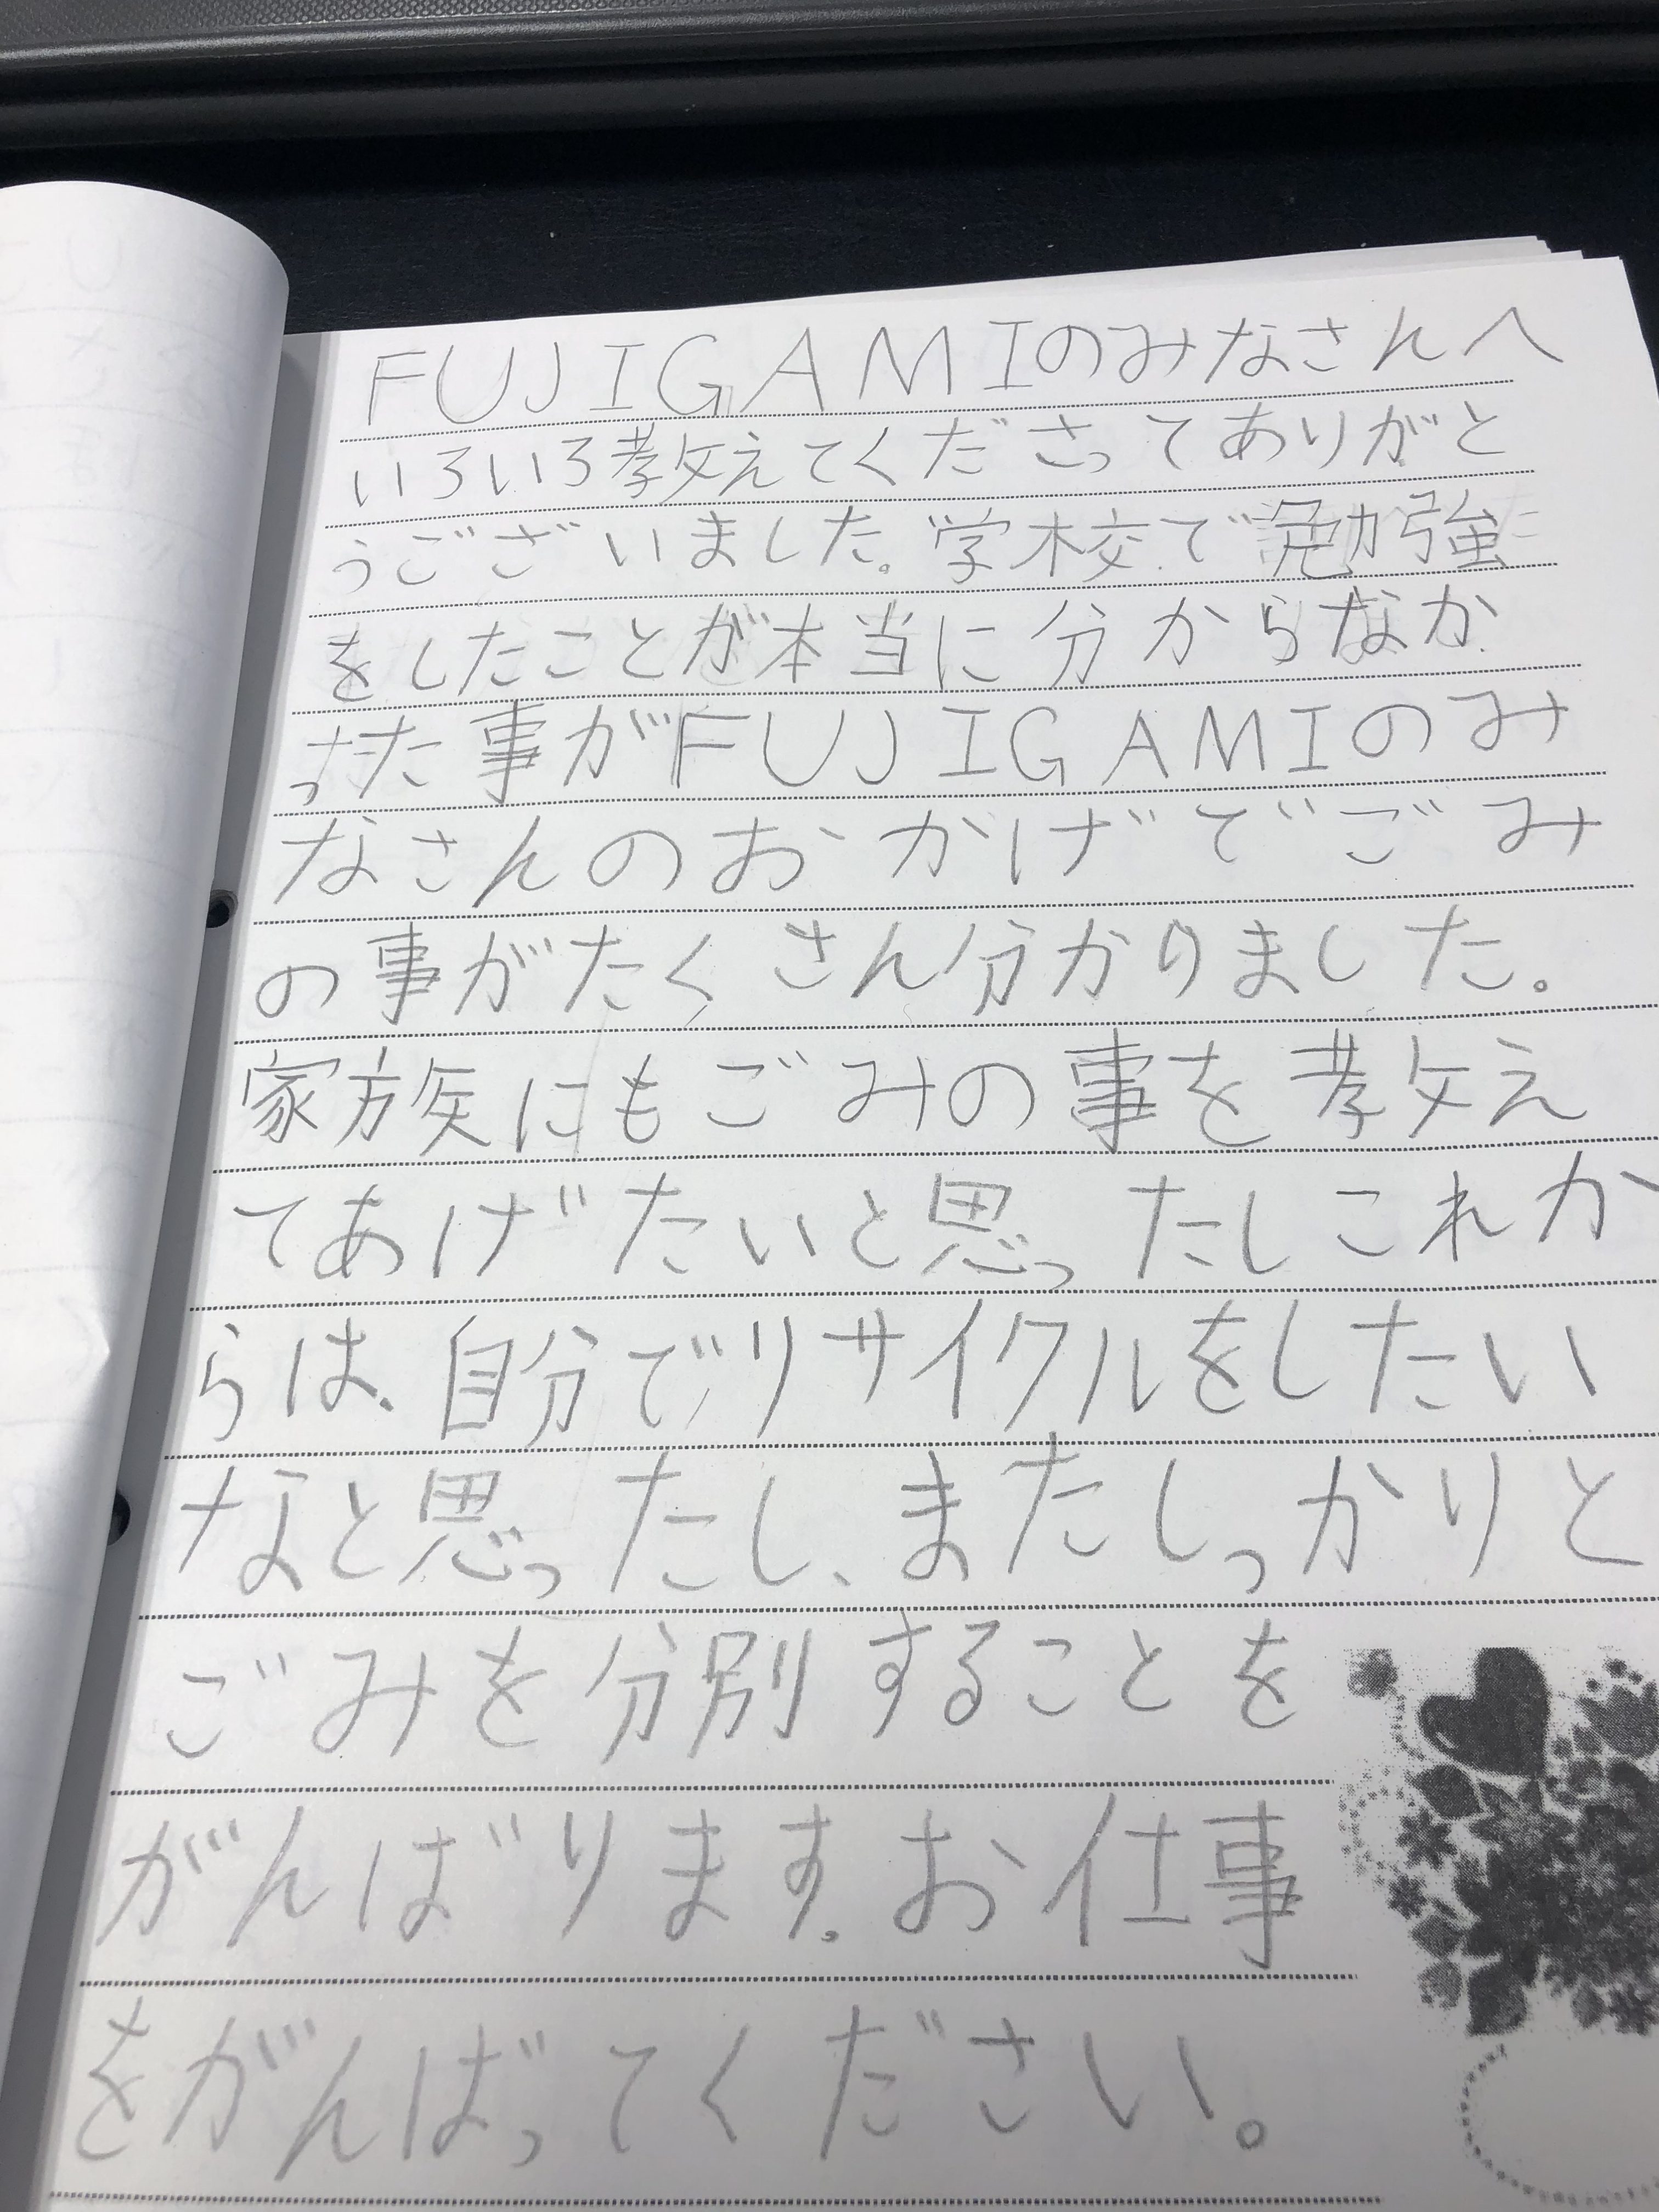 FUJIGAMIのみなさんへ
いろいろ教えてくださってありがと
うございました。学校で勉強
をしたことが本当に分からなか
った事がFUJIGAMIのみ
なさんのおかげでごみ
の事がたくさん分かりました。
家族にもごみの事を教え
てあげたいと思ったしこれか
らは、自分でリサイクルをしたい
なと思ったし、またしっかりと
ごみを分別することを
がんばります。お仕事
をがんばってください。